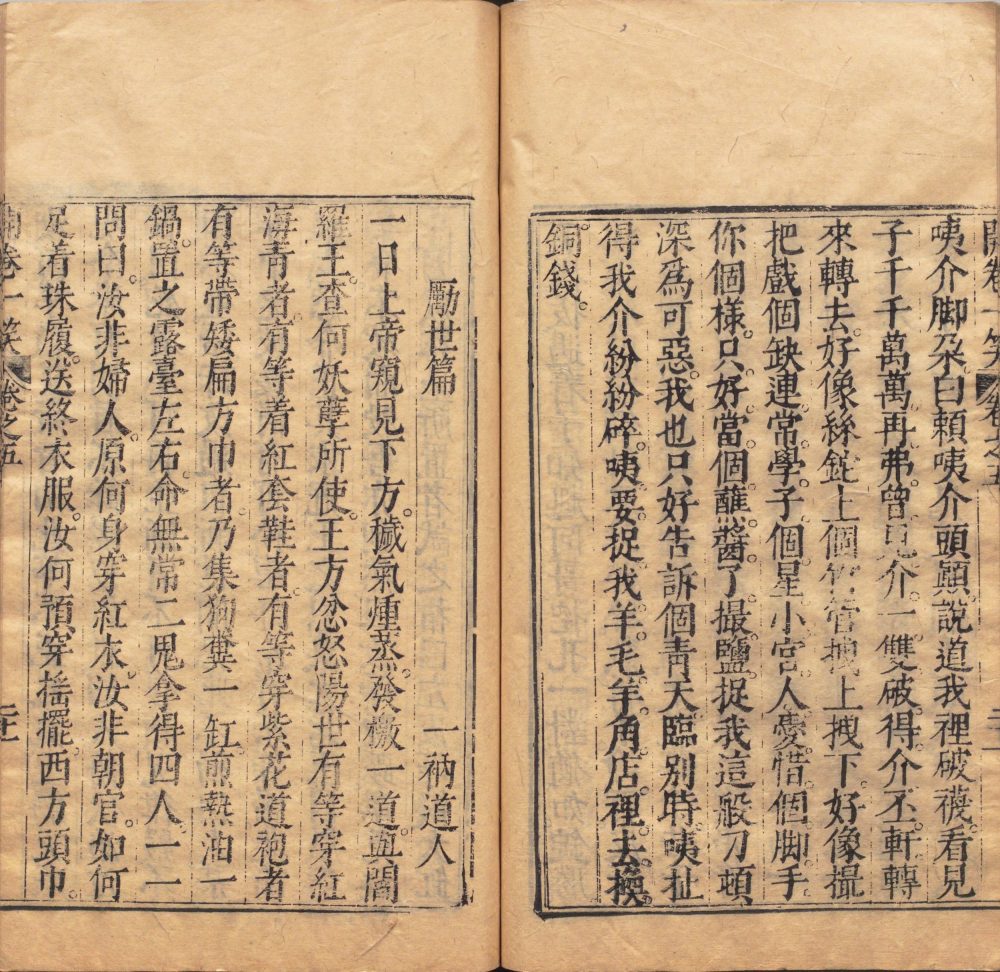 開卷一笑 卷之五
咦介脚朶曰賴咦介頭顯說道我裡破襪看見
子千千萬萬再弗曾見介一雙破得介丕軒轉
來轉去好像絲錠上個竹管拽上拽下好像撮
把戲個缺連常學子個星小官人憂惜個脚手
你個樣只好當個蘸醬了撮鹽捉我這般刀頓
深爲可惡我也只好告訴個靑天臨別時咦扯
得我介紛紛碎咦要捉我羊毛羊角店裡去換
銅錢
勵世篇 一衲道人
一日上帝窺見下方穢氣煙蒸發檄一道與閻
羅王查何妖孽所使王方忿怒陽世有等穿紅
海青者有等着紅套鞋者有等穿紫花道袍者
有等帶矮扁方巾者乃集狗糞一缸煎熱油一
鍋置之露臺左右命無常二鬼拿得四人一一
問曰汝非婦人原何身穿紅衣汝非朝官如何
足着珠履送終衣服汝何預穿摇擺西方頭巾
開卷一笑 卷之五